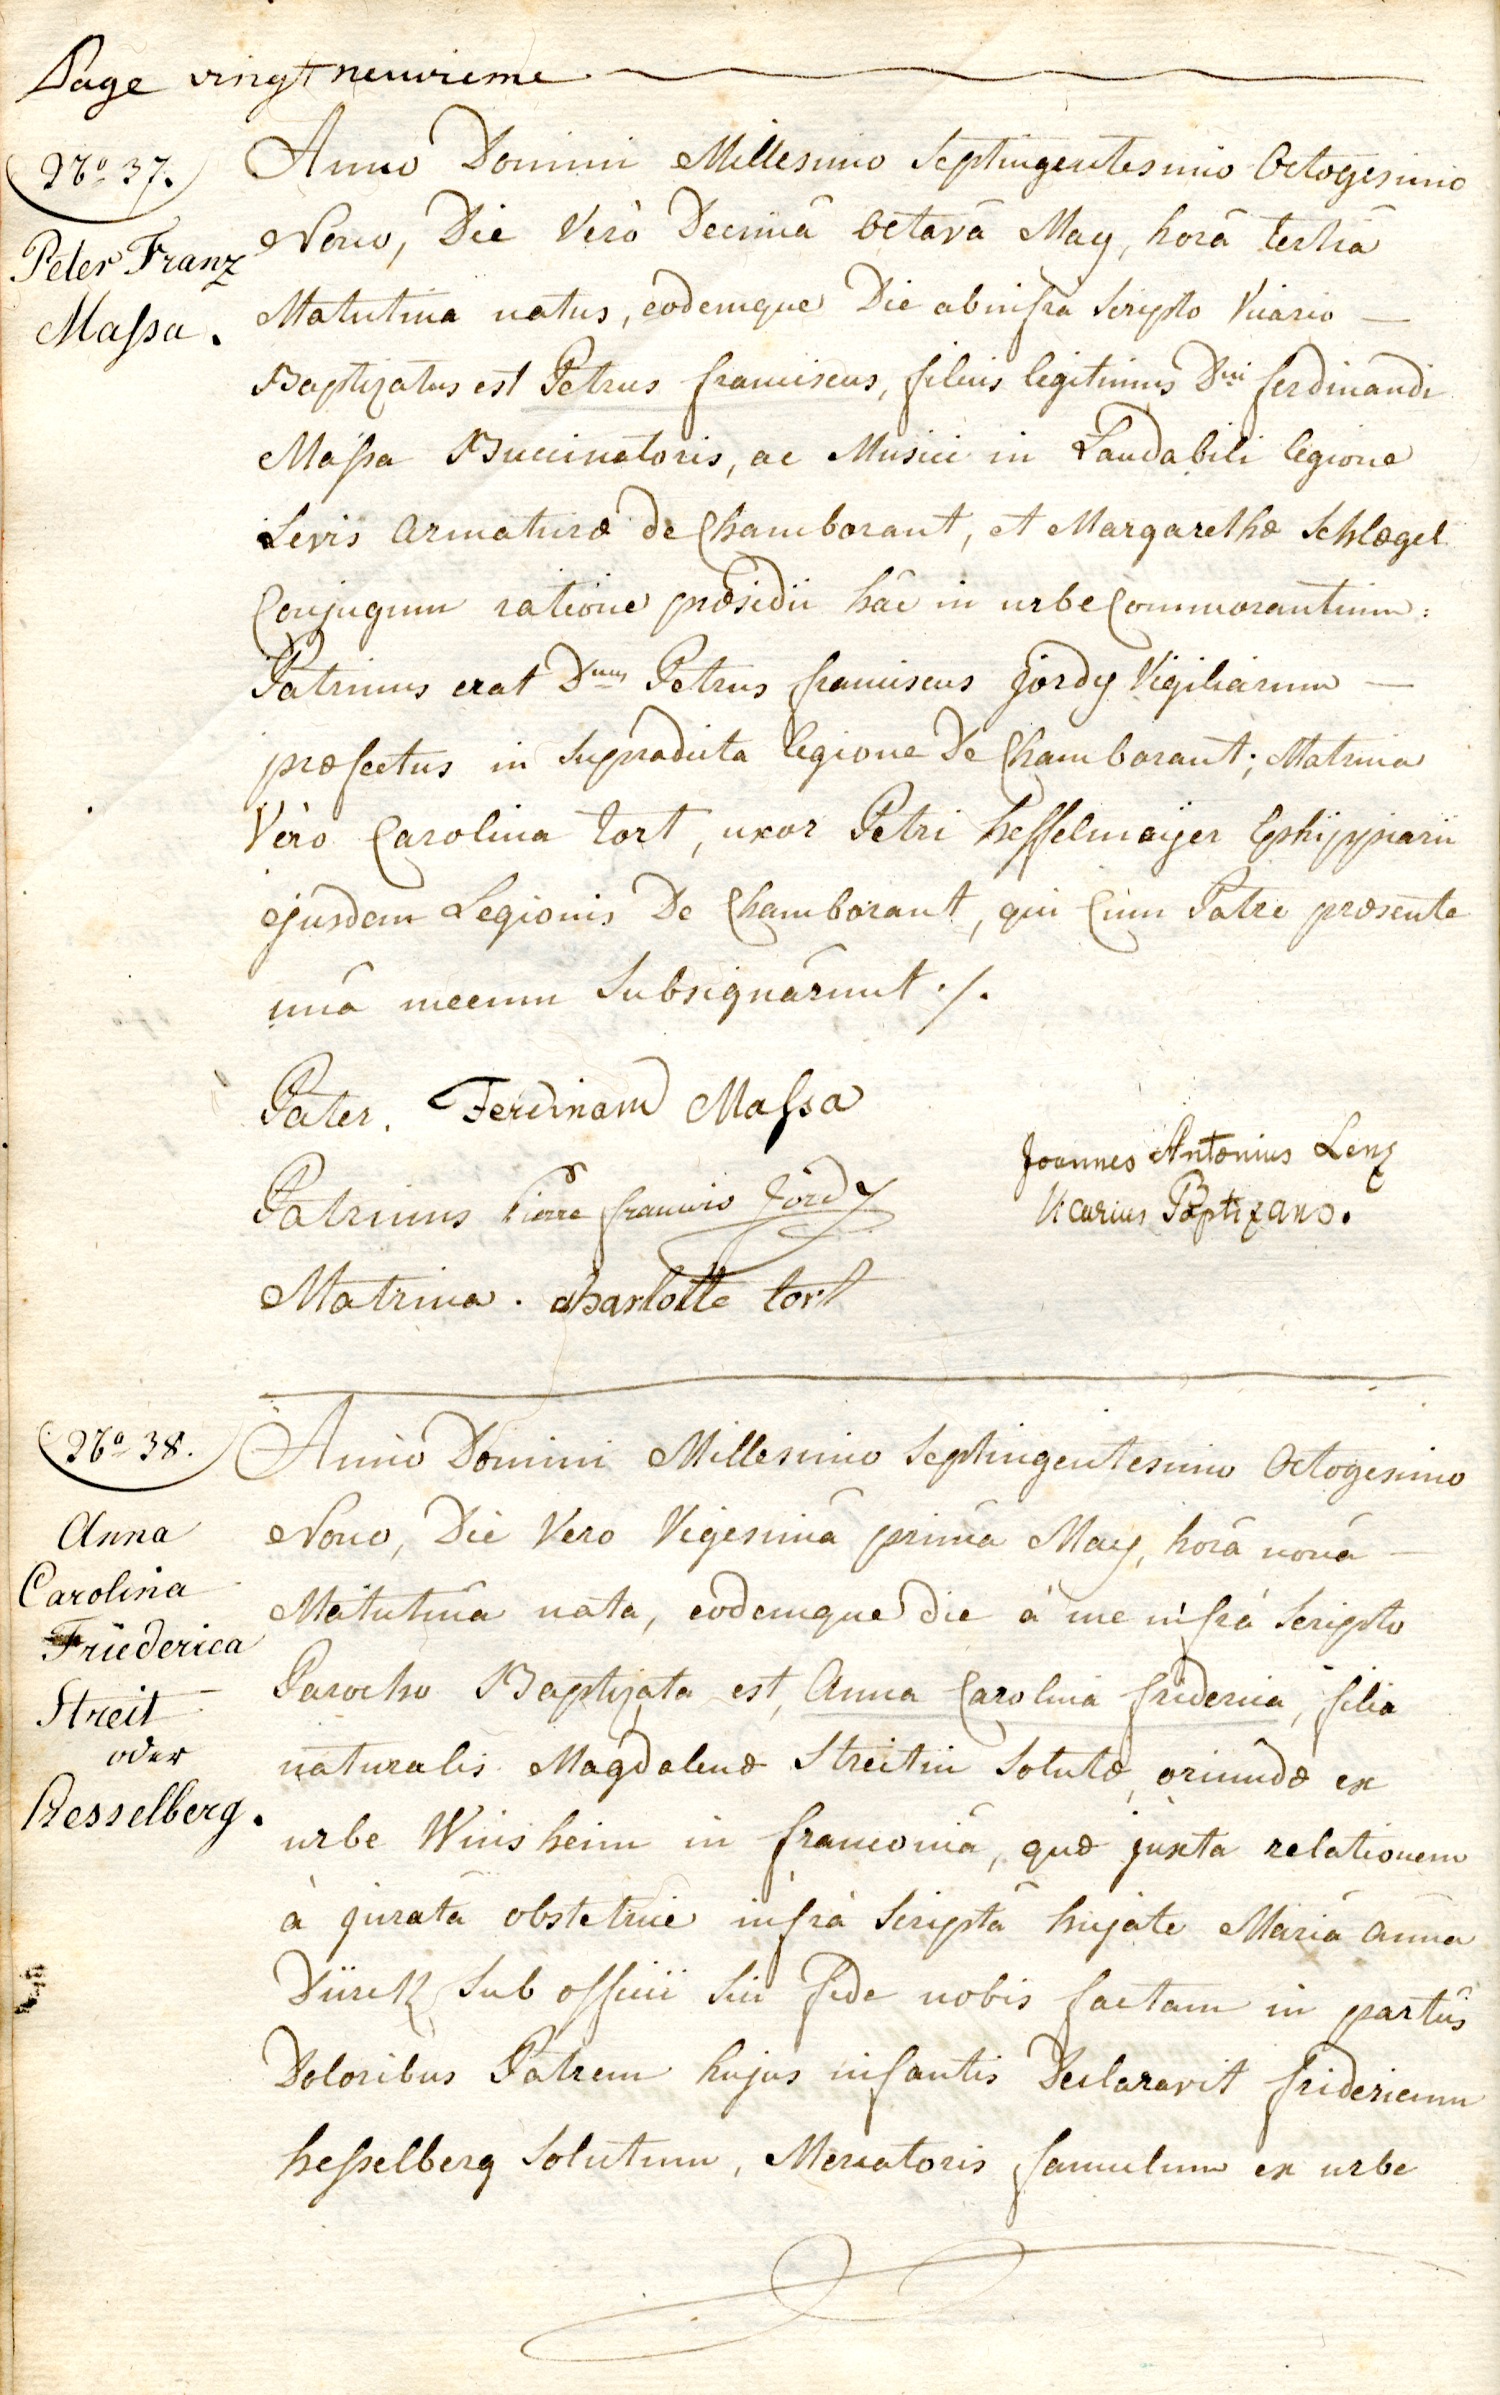 Page vingt neuvieme
No 37.
Peter Franz
Massa.
Anno Domini Millesimo Septingentesimo Octogesimo
Nono, Die Verò Decimâ Octavâ May, horâ tertiâ
Matutina natus, eodemque Die ab infra scripto Vicario —
Baptizatus est Petrus franciscus, filius legitimus Dni ferdinandi
Massa Buccinatoris, ac Musici in Laudabili legione
Levis armaturæ de Chamborant, et Margarethæ Schlægel
Conjugum ratione præsidii hâc in urbe Commorantium:
Patrinus erat Dnus Petrus franciscus Jordy Vigiliarum —
præfectus in supradicta legione De Chamborant; Matrina
Verò Carolina tort, uxor Petri hesselmeijer Ephippiarii
ejusdem Legionis De Chamborant, qui Cum Patre præsente
unâ mecum Subsignârunt ./.
Pater. Ferdinand Massa
Patrinus Pierre francois Jordy
Matrina. charlotte tort
Joannes Antonius Lenz
Vicarius Baptizans.
No 38.
Anna
Carolina
Friederica
Streit
oder
Hesselberg.
Anno Domini Millesimo Septingentesimo Octogesimo
Nono, Die Vero Vigesimâ primâ May, horâ nonâ —
Matutinâ nata, eodemque die à me infrà Scripto
Parocho Baptizata est, Anna Carolina friderica, filia
naturalis Magdalenæ Streitin Solutæ, oriundæ ex
urbe Winsheim in franconiâ, quæ juxta relationem
à juratâ obstetrice infrà Scriptâ hujate Mariâ Annâ
Dürck Sub officii Sui fide nobis factam in partûs
Doloribus Patrem hujus infantis Declaravit fridericum
hesselberg Solutum, Mercatoris famulum ex urbe